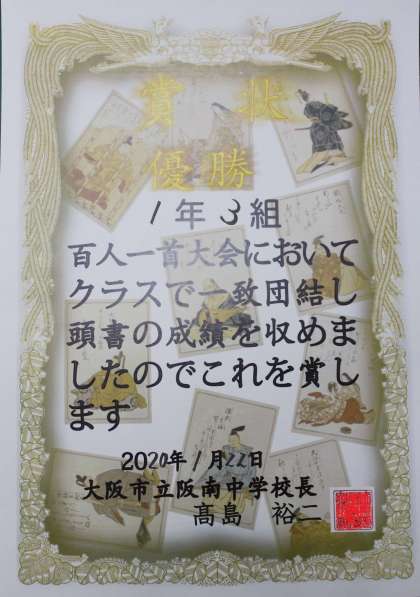 賞状
優勝
1年3組
百人一首大会において
クラスで一致団結し
頭書の成績を収めま
したのでこれを賞し
ます
2020年1月22日
大阪市立阪南中学校長
髙島 裕二